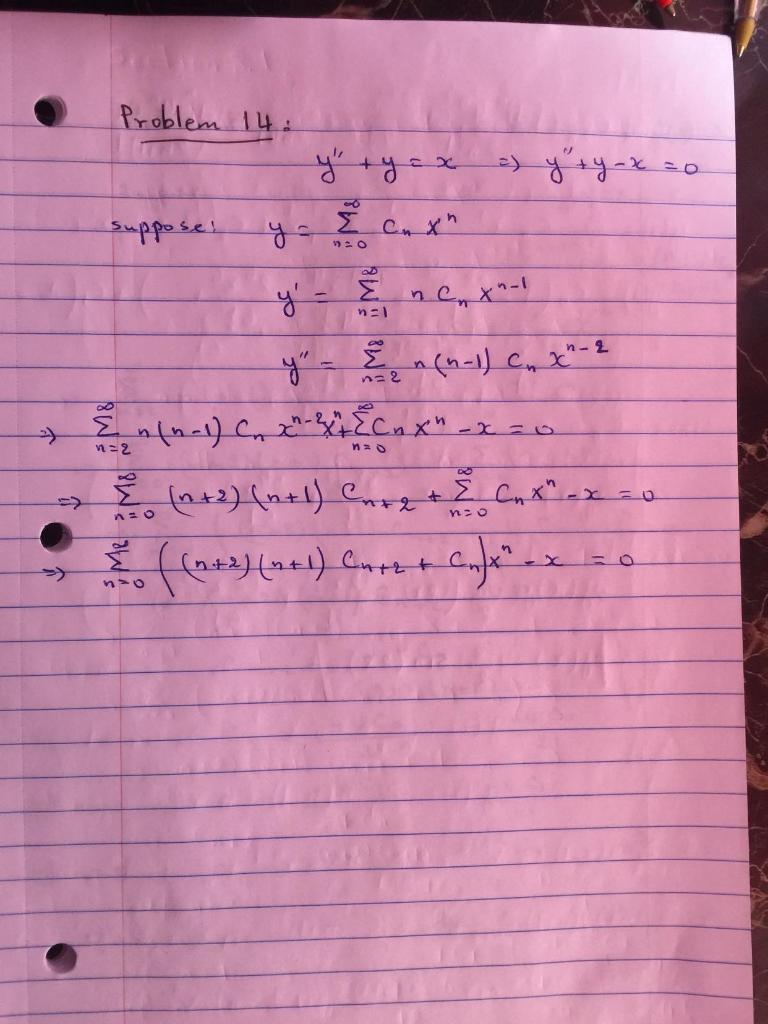 Problem 14:
y'' + y = x ⇒ y'' + y - x = 0
suppose: y = ∑_{n=0}^{∞} C_n x^n
y' = ∑_{n=1}^{∞} n C_n x^{n-1}
y'' = ∑_{n=2}^{∞} n(n-1) C_n x^{n-2}
⇒ ∑_{n=2}^{∞} n(n-1) C_n x^{n-2} + ∑_{n=0}^{∞} C_n x^n - x = 0
⇒ ∑_{n=0}^{∞} (n+2)(n+1) C_{n+2} + ∑_{n=0}^{∞} C_n x^n - x = 0
⇒ ∑_{n=0}^{∞} ((n+2)(n+1) C_{n+2} + C_n) x^n - x = 0